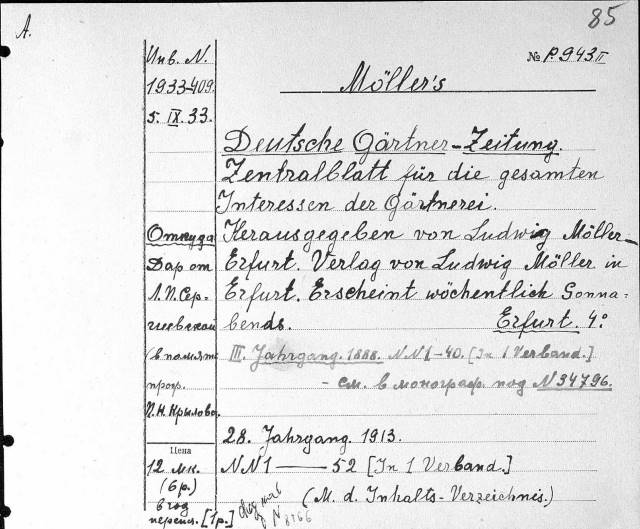 A.
85
Инв. N.
1933-409.
5. IX. 33.
№ P.943 II
Möller's
Deutsche Gärtner-Zeitung.
Zentralblatt für die gesamten
Interessen der Gärtnerei.
Herausgegeben von Ludwig Möller-
Erfurt. Verlag von Ludwig Möller in
Erfurt. Erscheint wöchentlich Sonna-
bends. Erfurt. 4°
III. Jahrgang. 1888. NN1-40. [In 1 Verband.]
- см. в монограф. под N 34796.
28. Jahrgang 1913.
NN1 — 52 [In 1 Verband.]
(M. d. Inhalts-Verzeichnis.)
Откуда
Дар от
Л.П. Сер-
гиевской
(в память
проф.
П.Н. Крылова.
Цена
12 мк.
(6 р.)
в год
перепл. [1 р.]
N 8766